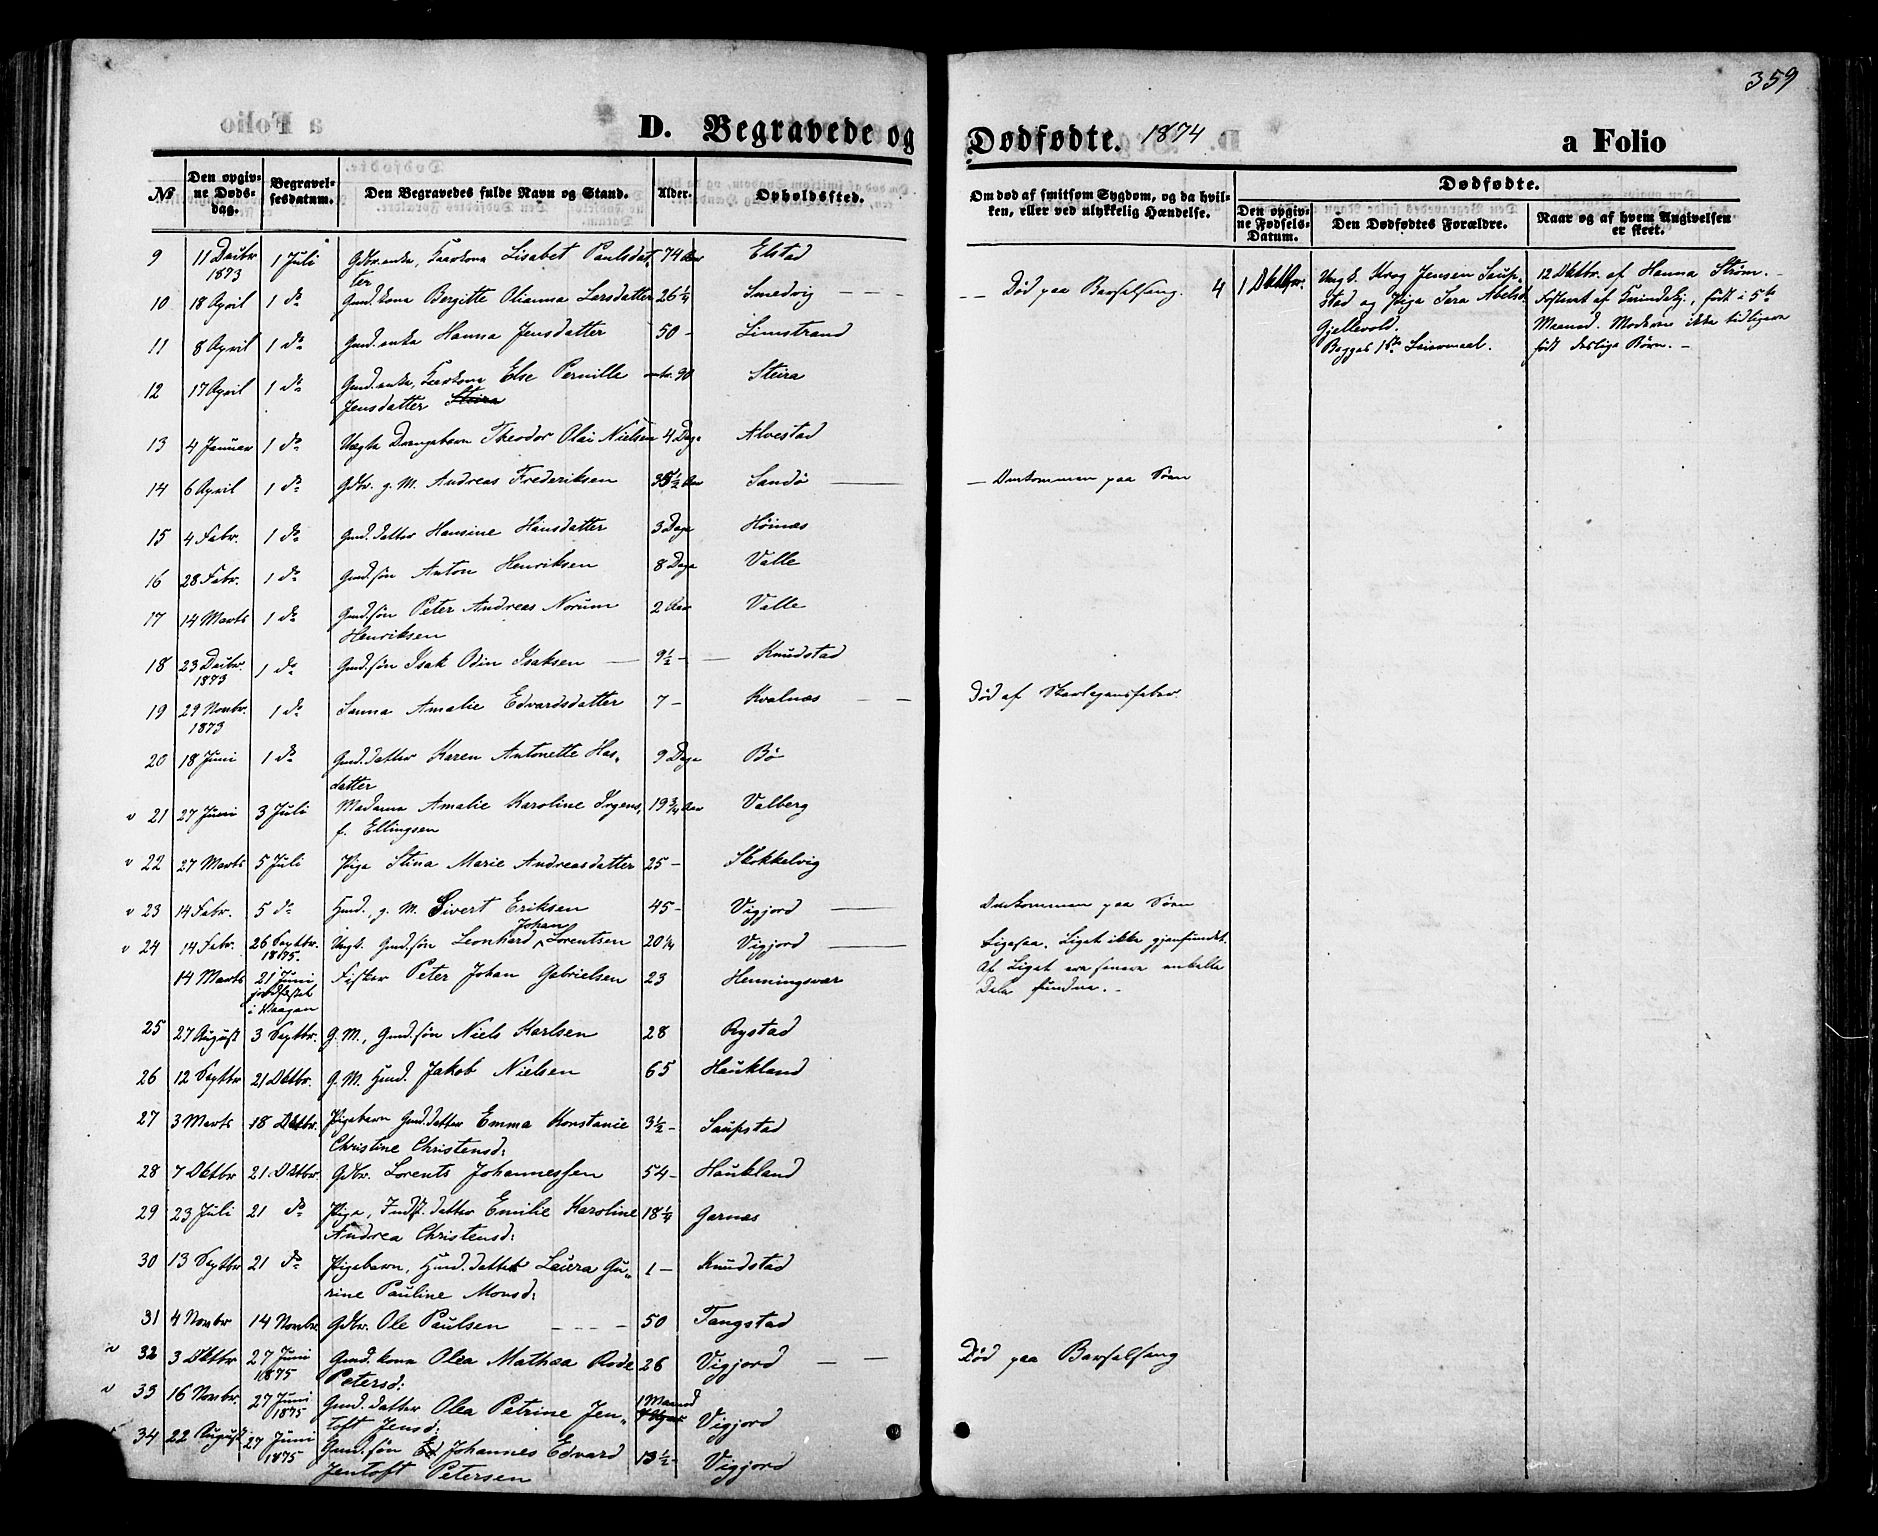 359
D. Begravede og Dødfødte. 1874 a Folio
No
Den opgivne Dødsdag.
Begravelsesdatum.
Den Begravedes fulde Navn og Stand.
Alder.
Opholdssted.
Om død af smitsom Sygdom, og da hvilken, eller ved ulykkelig Hændelse.
Dødfødte.
Den opgivne Fødsels-Datum.
Den Dødfødtes Forældre.
Naar og af hvem Angivelsen er skeet.
9 11 Decbr. 1873 1 Juli Gdbr. enke, Lisabet Paulsdatter 74 Aar Elstad
10 18 April 1 do Gmd. kona Bergitte Olianna Larsdatter 26 1/4 Smedvig Død paa Barselseng.
11 8 April 1 do Gmd. enke Hanna Jensdatter 50 - Limstrand
12 17 April 1 do Gmd. enke, Else Pernille Jensdatter 90 Steira
13 4 Januar 1 do Uægte Drengebarn Theodor Olai Nielsen 4 Dage Alvestad
14 6 April 1 do Gdbr. g. M. Andreas Frederiksen 35 1/2 Aar Sandö Omkommen paa Søen
15 4 Febr. 1 do Gmd. datter Hansine Hansdatter 3 Dage Höinæs
16 28 Febr. 1 do Gmd. søn Anton Henriksen 8 Dage Valle
17 14 Marts 1 do Gmd. søn Peter Andreas Norum Henriksen 2 Aar Valle
18 23 Decbr. 1873 1 do Gmd. søn Isak Odin Isaksen 9 1/2 - Knudstad
19 29 Novbr. 1873 1 do Sanna Amalie Edvardsdatter 7 - Kvalnæs Død af Skarlagensfeber
20 18 Juni 1 do Gmd. datter Karen Antonette Hasdatter 9 Dage Bö
v 21 27 Juni 3 Juli Madama Amalie Karoline Irgens, f. Ellingsen 19 3/4 Aar Valberg
v 22 27 Marts 5 Juli Pige Stina Marie Andreasdatter 25 - Skokkelvig
v 23 14 Febr. 5 do Hmd., g. M. Sivert Eriksen 45 - Vigjord Omkommen paa Søen
v 24 14 Febr. 26 Septbr. 1875. Ungk. Gmd. søn Leonhard Johan Lorentsen 20 1/4 Vigjord Ligesaa. Liget ikke gjenfundet. Af Liget ere senere enkelte Dele fundne. -
14 Marts 21 Juni jordfæstet i Vaagan Fisker Peter Johan Gabrielsen 23 Henningsvær
25 27 August 3 Septbr. G. M., Gmd. søn Niels Karlsen 28 Rystad
26 12 Septbr 21 Oktbr. G. M. Hmd. Jakob Nielsen 65 Haukland
27 3 Marts 18 Oktbr. Pigebarn Gmd. datter Emma Konstanie Christine Christensd: 3 1/2 - Saupstad
28 7 Oktbr 21. Oktbr. Gdbr. Lorents Johannessen 54 - Haukland
29 23 Juli 21 do Pige, Indst. datter Emilie Karoline Andrea Christensd: 18 1/4 Garnæs
30 13 Septbr 21 do Pigebarn, Hmd. datter Laura Gurine Pauline Monsd: 1 - Knudstad
31 4 Novbr 14 Novbr. Gdbr. Ole Paulsen 50 Tangstad
v 32 3 Oktbr 27 Juni 1875 Gmd. kona Olea Mathea Rode Petersd: 26 Vigjord Død paa Barselseng
v 33 16 Novbr. 27 Juni 1875 Gmd. datter Olea Petrine Jentoft Jensd: 1 Maaned Vigjord
34 22 August 27 Juni 1875 Gmd. søn Johannes Edvard Jentoft Petersen 13 1/2 - Vigjord
4 1 Oktbr. Ungk. Krog Jensen Saupstad og Pige Sera Abelsd. Gjellevold.
Begges 1ste Leiermaal.
12 Oktbr. af Hanna Strøm. -
Attest af født i 5te
Maaned. Moderen ikke tidligere
født deslige Børn. -